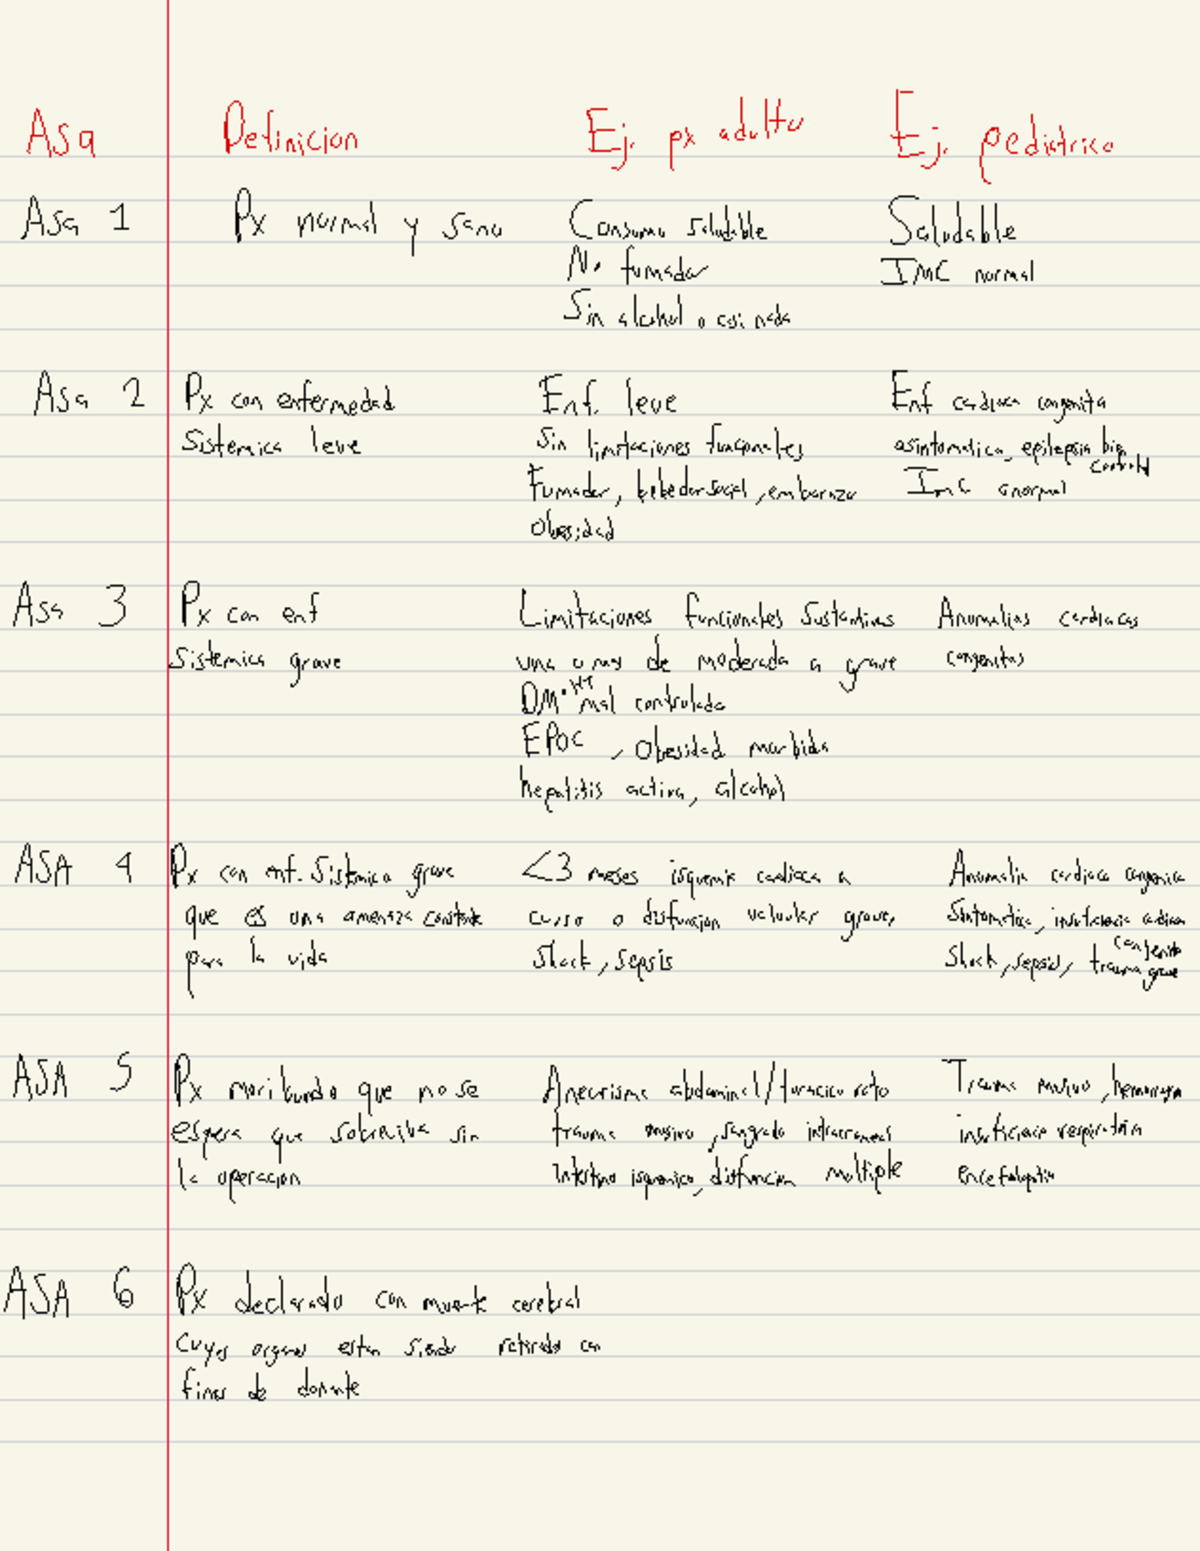 Asa Definicion Ej. px adulto Ej. pediatrico
Asa 1 Px normal y sano Consumo saludable Saludable
No fumador IMC normal
Sin alcohol o casi nada
Asa 2 Px con enfermedad Enf. leve Enf cardiaca congenita
Sistemica leve Sin limitaciones funcionales asintomatica, epilepsia bien
control
Fumador, bebedor social, embarazo Imc anormal
Obesidad
Asa 3 Px con enf Limitaciones funcionales Sustantivas Anomalias cardiacas
Sistemica grave una o mas de moderada a grave congenitas
DM · HT mal controlada
EPOC , Obesidad morbida
hepatitis activa, alcohol
ASA 4 Px con enf. Sistemica grave <3 meses isquemia cardiaca a Anomalia cardiaca congenica
que es una amenaza constante curso o disfuncion valvular grave, Sintomatica, insuficiencia
congenita
para la vida Shock, sepsis Shock, sepsis, trauma grave
ASA 5 Px moribundo que no se Aneurisma abdominal/toracico roto Trauma masivo, hemorragia
espera que sobreviva sin trauma masivo, sangrado intracraneal insuficiencia respiratoria
la operacion Intestino isquemico, disfuncion multiple encefalopatia
ASA 6 Px declarado con muerte cerebral
Cuyos organos estan siendo retirado con
fines de donante